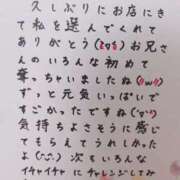 久しぶりにお店にき
て私を選んでくれて
ありがとう(3q3)お兄さ
んのいろんな初めて
奪っちゃいましたね(〃ω〃)
ずっと元気いっぱいで
すごかったですね(°∀°)
気持ちよさそうに感じ
てもらえてうれしかった
よ(◡̈)次もいろんな
イチャイチャにチャレンジしてみ